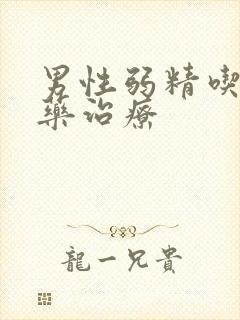 男性弱精喫
藥治療
龍一兄貴